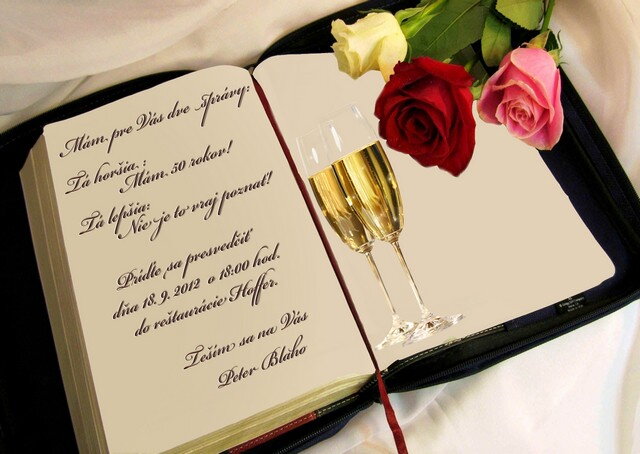 Mám pre Vás dve správy:
Tá horšia :
Mám 50 rokov!
Tá lepšia:
Nie je to vraj poznať!
Príďte sa presvedčiť
dňa 18. 9. 2012 o 18:00 hod.
do reštaurácie Hoffer.
Teším sa na Vás
Peter Bláho